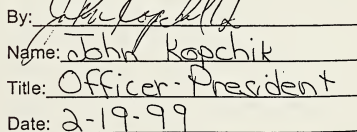 By:
Name: John Kopchik
Title: Officer-President
Date: 2-19-99